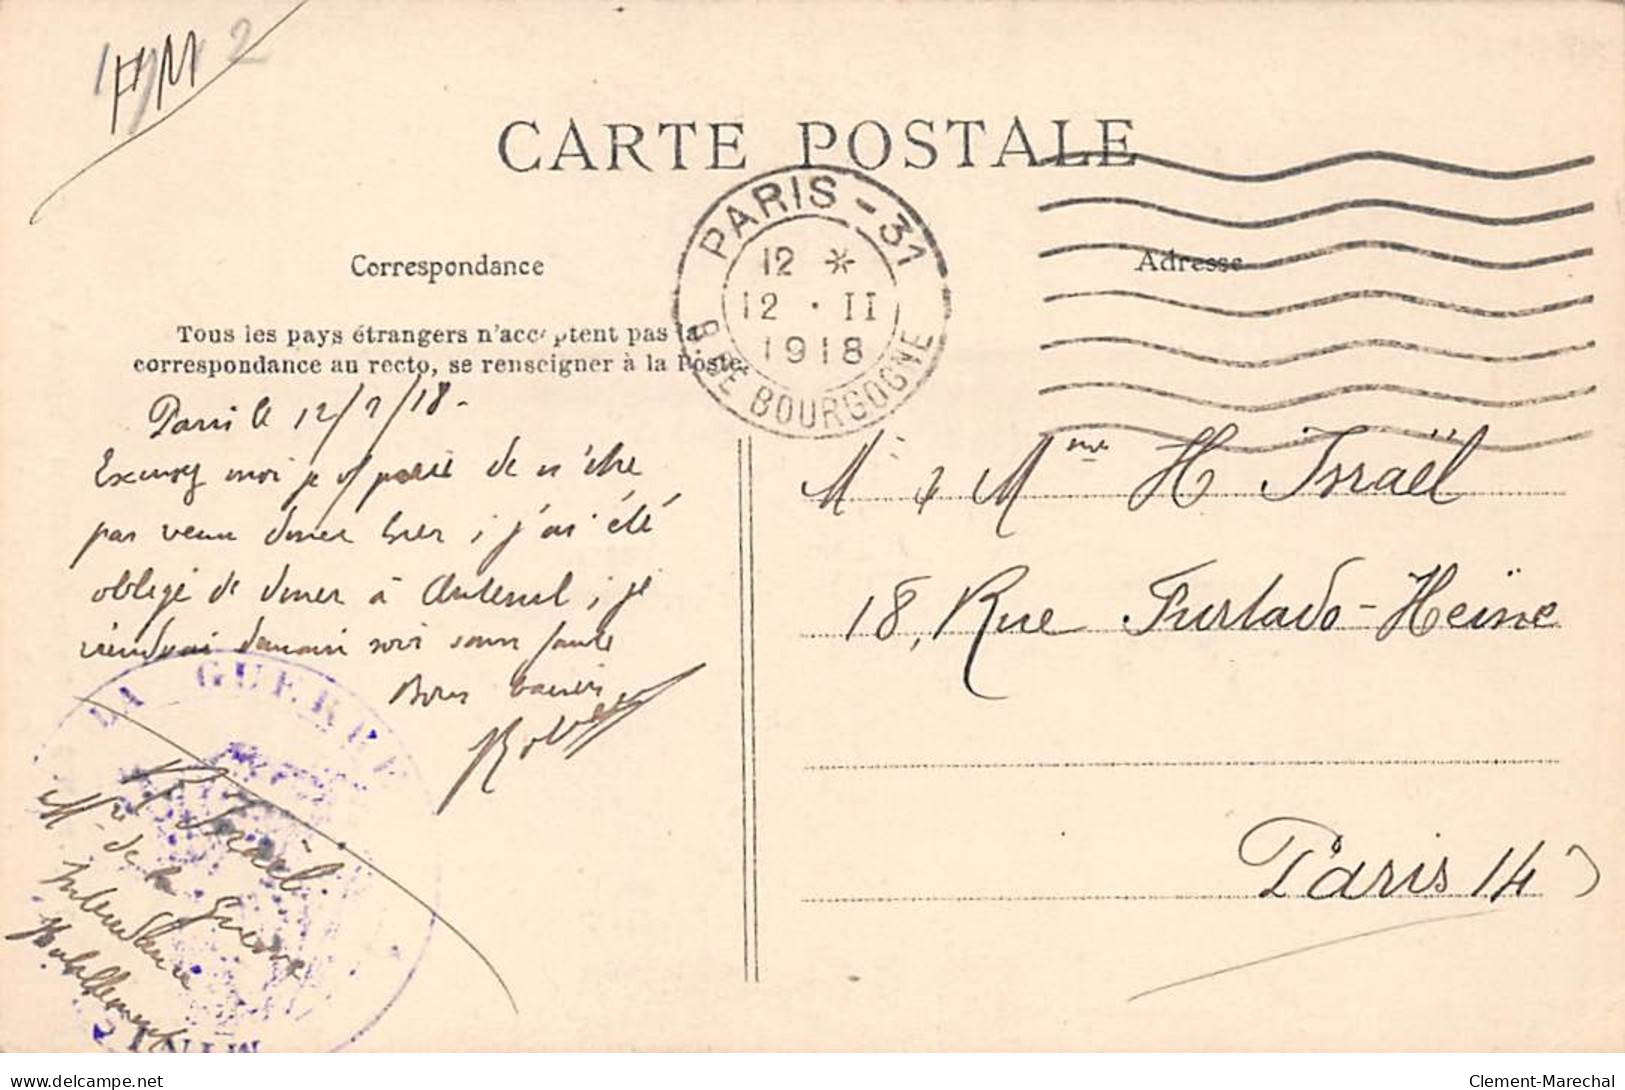 FM
2
CARTE POSTALE
PARIS - 31
12 *
12 · II
1918
R. DE BOURGOGNE
Correspondance
Adresse
Tous les pays étrangers n'acceptent pas la
correspondance au recto, se renseigner à la Poste.
Paris le 12/2/18 -
Excusez moi je de n'être
pas venu diner hier, j'ai été
obligé de diner à Auteuil, je
viendrai demain soir sans faute
Bons baisers
Robert
M & Mme H Israël
18, Rue Furtado-Heine
Paris 14
LA GUERRE
MINIS
R Israël
Mre de la Guerre
Intendance
Habillement
delcampe.net
Clement-Marechal